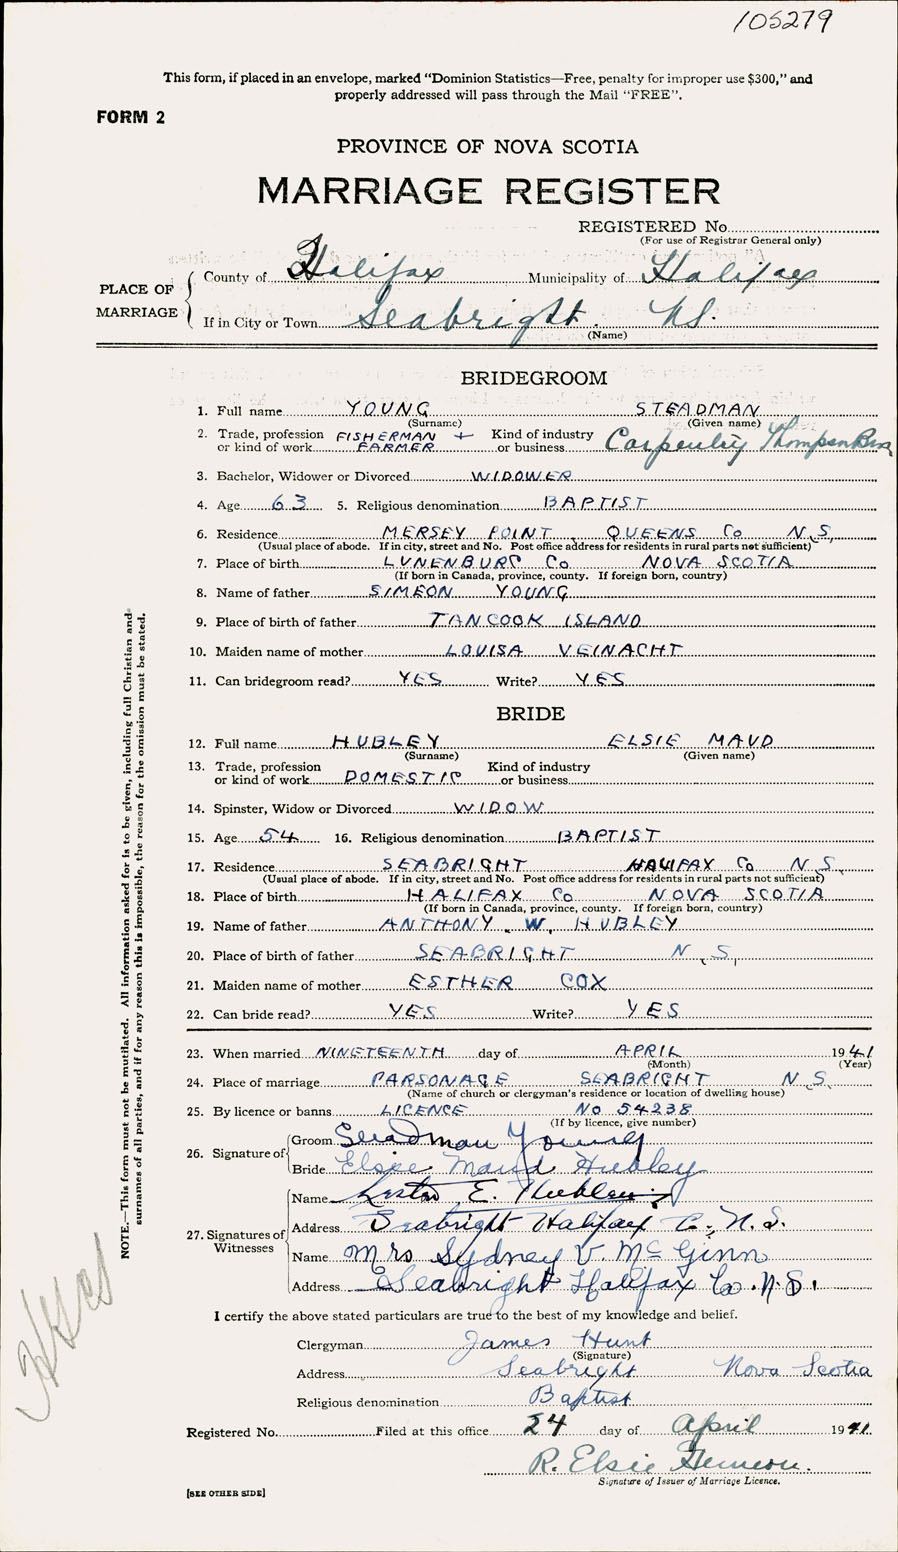 105279
This form, if placed in an envelope, marked “Dominion Statistics—Free, penalty for improper use $300,” and
properly addressed will pass through the Mail “FREE”.
FORM 2
PROVINCE OF NOVA SCOTIA
MARRIAGE REGISTER
REGISTERED No.
(For use of Registrar General only)
PLACE OF MARRIAGE
County of Halifax Municipality of Halifax
If in City or Town Seabright. NS.
(Name)
BRIDEGROOM
1. Full name YOUNG STEADMAN
(Surname) (Given name)
2. Trade, profession or kind of work FISHERMAN + FARMER Kind of industry or business Carpentry Thompson Bros
3. Bachelor, Widower or Divorced WIDOWER
4. Age 63 5. Religious denomination BAPTIST
6. Residence MERSEY POINT, QUEENS Co N.S.
(Usual place of abode. If in city, street and No. Post office address for residents in rural parts not sufficient)
7. Place of birth LUNENBURG Co NOVA SCOTIA
(If born in Canada, province, county. If foreign born, country)
8. Name of father SIMEON YOUNG
9. Place of birth of father TANCOOK ISLAND
10. Maiden name of mother LOUISA VEINACHT
11. Can bridegroom read? YES Write? YES
BRIDE
12. Full name HUBLEY ELSIE MAUD
(Surname) (Given name)
13. Trade, profession or kind of work DOMESTIC Kind of industry or business
14. Spinster, Widow or Divorced WIDOW
15. Age 54 16. Religious denomination BAPTIST
17. Residence SEABRIGHT HALIFAX Co N.S.
(Usual place of abode. If in city, street and No. Post office address for residents in rural parts not sufficient)
18. Place of birth HALIFAX Co NOVA SCOTIA
(If born in Canada, province, county. If foreign born, country)
19. Name of father ANTHONY. W. HUBLEY
20. Place of birth of father SEABRIGHT N.S.
21. Maiden name of mother ESTHER COX
22. Can bride read? YES Write? YES
23. When married NINETEENTH day of APRIL 1941
(Month) (Year)
24. Place of marriage PARSONAGE SEABRIGHT N.S.
(Name of church or clergyman's residence or location of dwelling house)
25. By licence or banns LICENCE No 54238
(If by licence, give number)
26. Signature of
Groom Steadman Young
Bride Elsie Maud Hubley
27. Signatures of Witnesses
Name E. Hubley
Address Seabright Halifax C. N.S.
Name Mrs Sydney V. McGinn
Address Seabright Halifax Co. N.S.
I certify the above stated particulars are true to the best of my knowledge and belief.
Clergyman James Hunt
(Signature)
Address Seabright Nova Scotia
Religious denomination Baptist
Registered No. Filed at this office 24 day of April 1941
R. Elsie
Signature of Issuer of Marriage Licence.
[SEE OTHER SIDE]
NOTE.—This form must not be mutilated. All information asked for is to be given, including full Christian and
surnames of all parties, and if for any reason this is impossible, the reason for the omission must be stated.